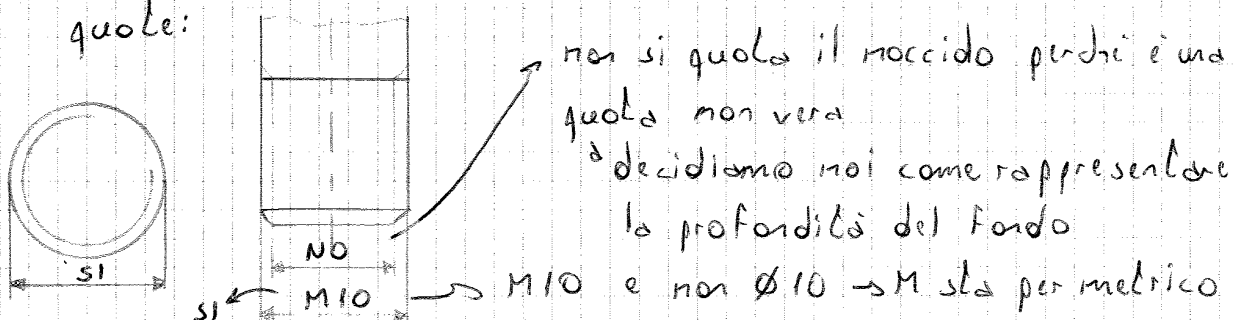 quote:
non si quota il nocciolo perché è una
quota non vera
decidiamo noi come rappresentare
la profondità del fondo
NO
SI
SI ← M10 → M10 e non Ø10 → M sta per metrico